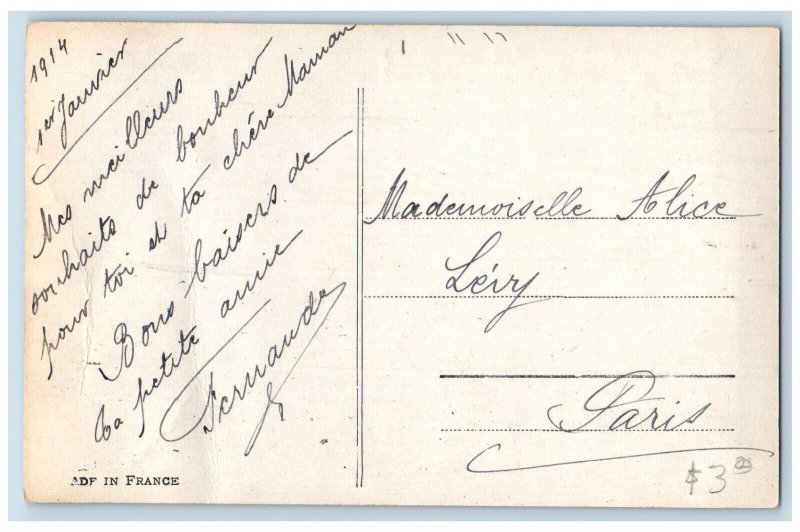 1914
1er Janvier
Mes meilleurs
souhaits de bonheur
pour toi et ta chère Maman
Bons baisers de
ta petite amie
Fernande
Mademoiselle Alice
Lévy
Paris
$3
ADE IN FRANCE